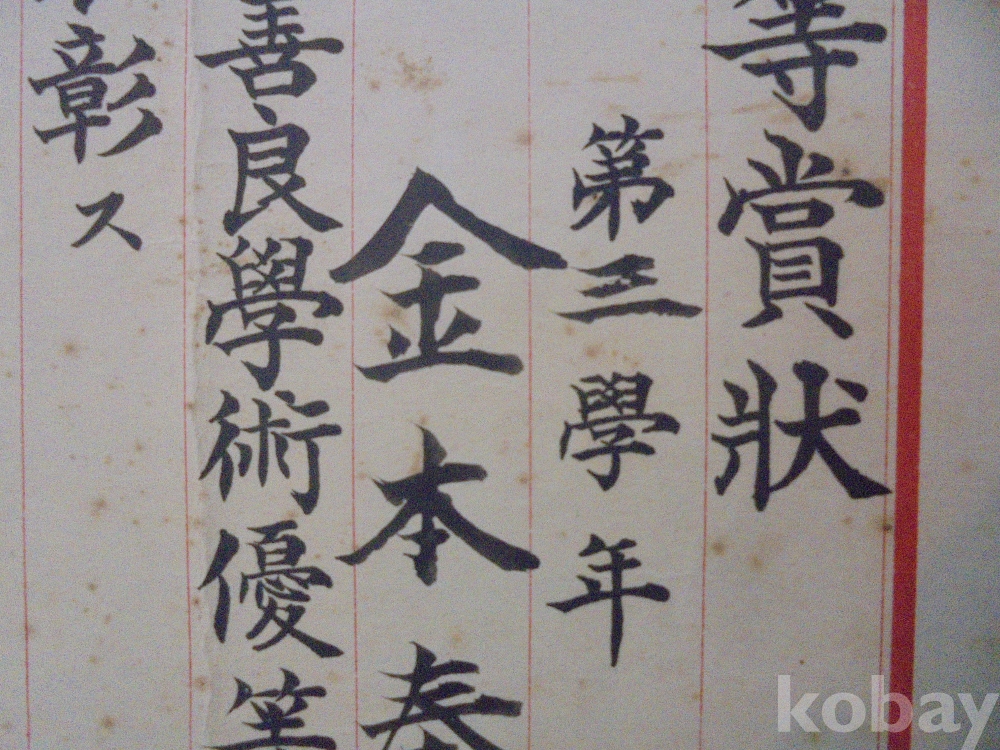 等賞狀
第三學年
金本泰
善良學術優等
彰ス
kobay